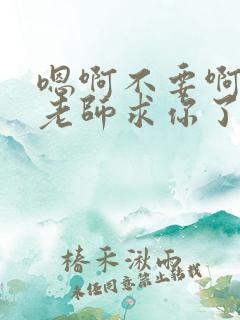 嗯啊不要啊
老师求你了
椿禾湫雨
未经同意禁止转载